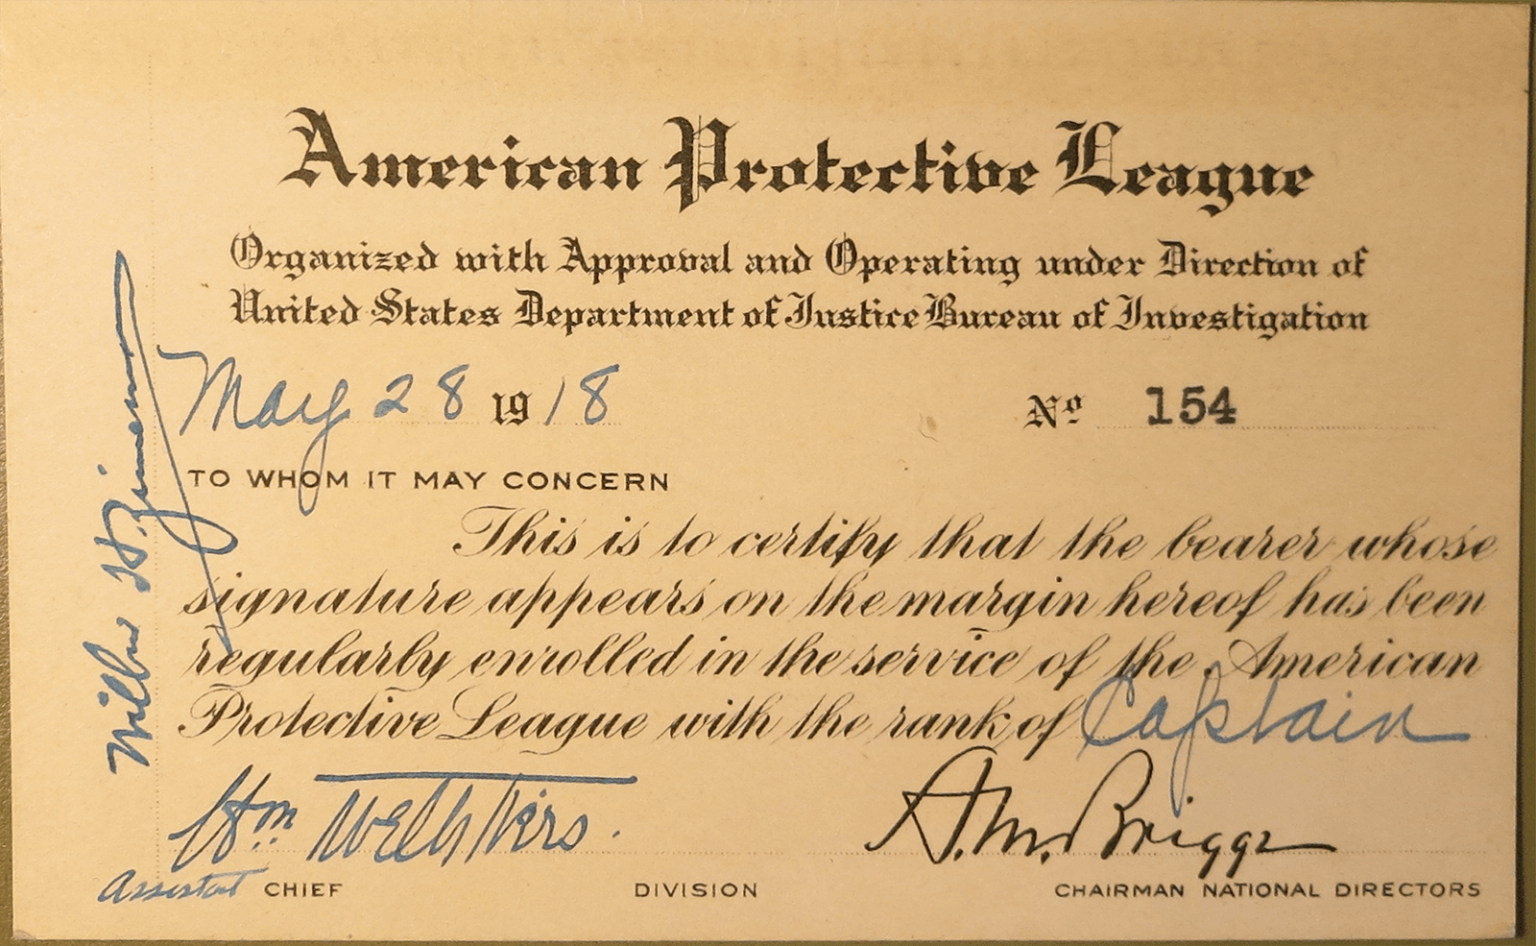 American Protective League
Organized with Approval and Operating under Direction of
United States Department of Justice Bureau of Investigation
May 28 1918 No 154
TO WHOM IT MAY CONCERN
This is to certify that the bearer whose
signature appears on the margin hereof has been
regularly enrolled in the service of the American
Protective League with the rank of Captain
Wm A.M. Briggs
Assistant CHIEF DIVISION CHAIRMAN NATIONAL DIRECTORS
H.